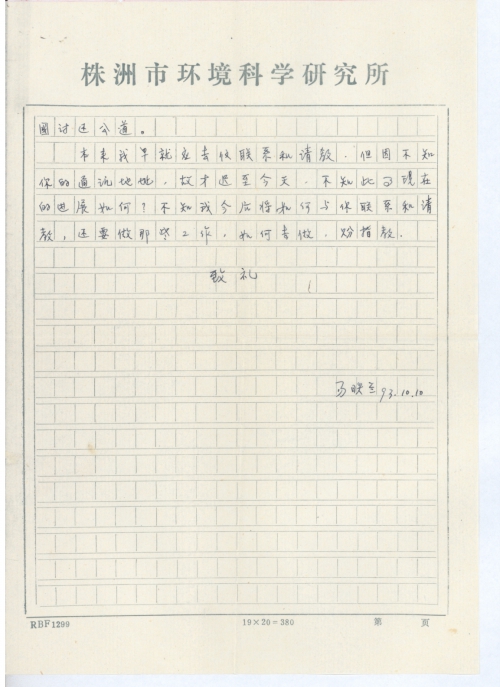 株洲市环境科学研究所
国讨还公道。
本来我早就应去你联系和请教，但因不知
你的通讯地址，故才迟至今天，不知此司现在
的进展如何？不知我今后将如何与你联系和请
教，还要做那些工作，如何去做，盼指教。
致礼
93.10.10
RBF1299 19×20=380 第 页